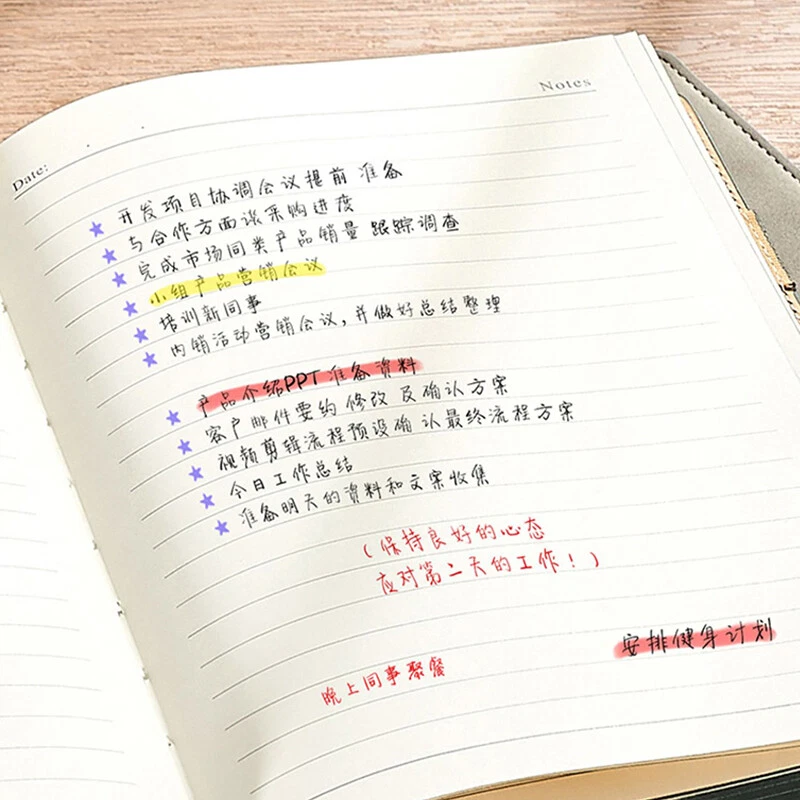 Notes
Date:
开发项目协调会议提前准备
与合作方面谈采购进度
完成市场同类产品销量跟踪调查
小组产品营销会议
培训新同事
内销活动营销会议，并做好总结整理
产品介绍PPT准备资料
客户邮件要约修改及确认方案
视频剪辑流程预设确认最终流程方案
今日工作总结
准备明天的资料和文案收集
（保持良好的心态
应对第二天的工作！）
安排健身计划
晚上同事聚餐